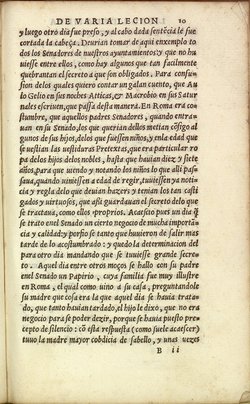 DE VARIA LECION 10
y luego otro dia fue preso, y al cabo dada sentẽcia le fue
cortada la cabeça. Deurian tomar de aqui enxemplo to
dos los Senadores de nuestros ayuntamiẽtos: y que no hu
uiesse entre ellos, como hay algunos que tam facilmente
quebrantan el secreto a que son obligados. Para confu
sion delos quales quiero contar un galan cuento, que Au
lo Gelio en sus noches Atticas, & Macrobio en sus Satur
nales escriuen, que passa desta manera. En Roma era co
stumbre, que aquellos padres Senadores, quando entra
uan en su Senado, los que querian dellos metian cõsigo al
gunos de sus hijos, delos que fuessen niños, y nelas edad que
se uestian las uestiduras Pretextas, que era particular ro
pa delos hijos delos nobles, hasta que hauian diez, y siete
años, para que uiendo y notando los niños lo que alli pas
saua, quando uiniessen a edad de regir, tuuiessen ya noti
cia y regla delo que deuian hazer: y tenian los tan casti
gados y uirtuosos, que assi guardauan el secreto delo que
se tractaua, como ellos proprios. Acaescio pues un dia q̃
se trato enel Senado un cierto negocio de mucha importan
cia y calidad: y por tanto se tuuo que huuieron de salir mas
tarde de lo acostumbrado: y quedo la determinacion del
para otro dia mandando que se tuuiesse grande secre
to. Aquel dia entre otros moços se hallo con su padre
enel Senado un Papirio, cuya familia fue muy illustre
en Roma, el qual como uino a su casa, preguntandole
su madre que cosa era la que aquel dia se hauia trata-
do, que tanto hauian tardado, el hijo le dixo, que no era
negocio para se poder dezir, porque se hauia puesto pre
cepto de silencio: cõ esta respuesta (como suele acaescer)
tuuo la madre mayor cobdicia de sabello, y unas vezes
B ii